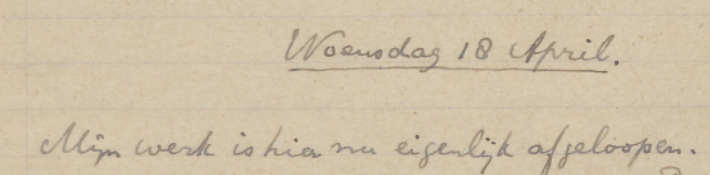 Woensdag 18 April.
Mijn werk is hier nu eigenlijk afgeloopen.